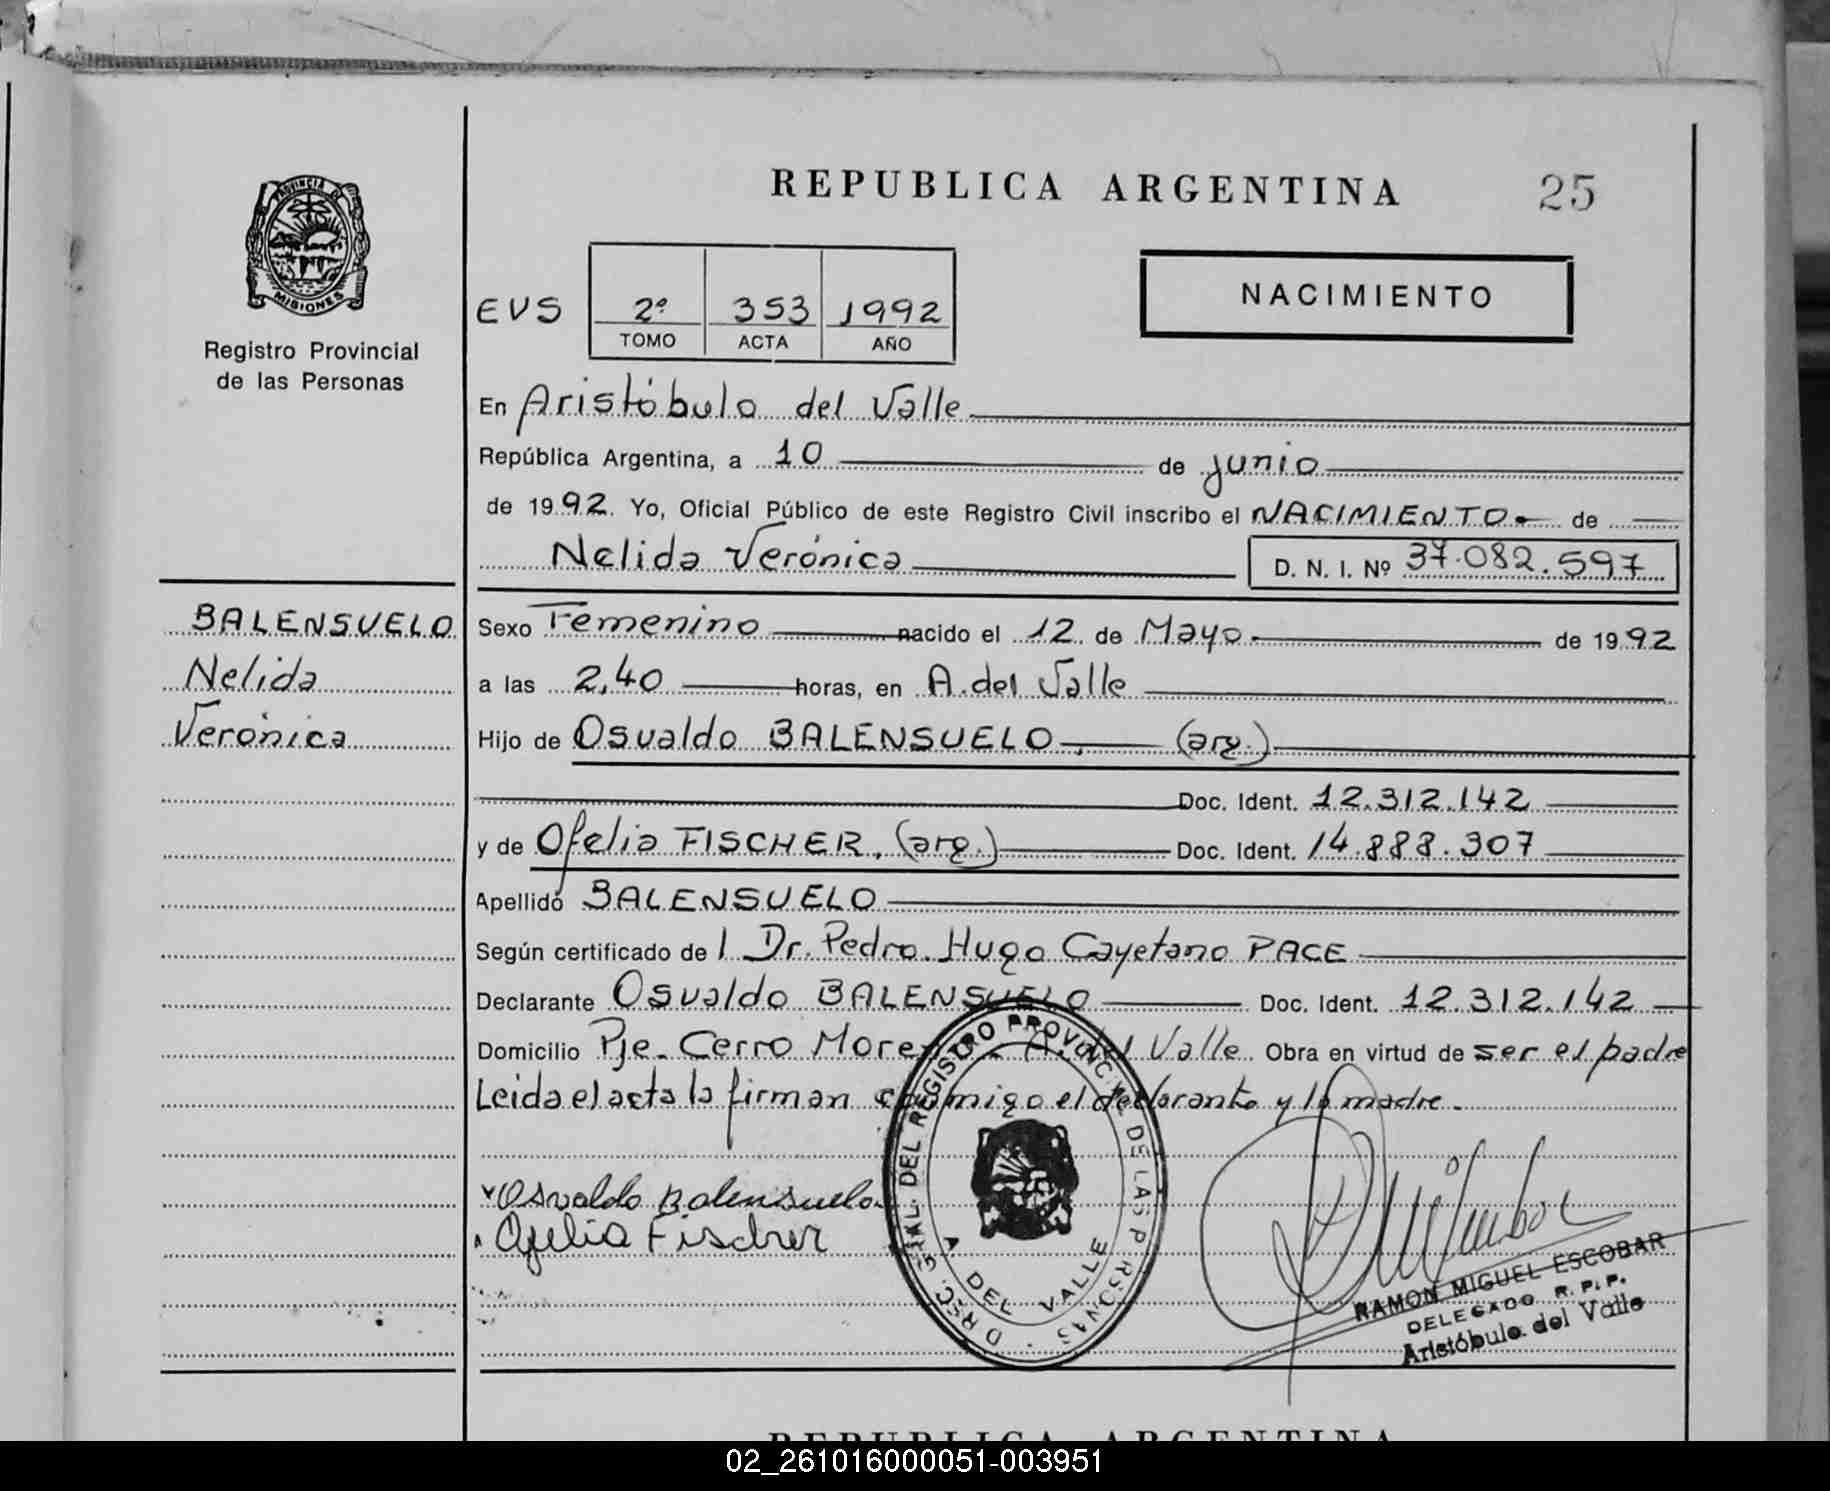 REPUBLICA ARGENTINA 25
PROVINCIA DE
MISIONES
Registro Provincial
de las Personas
EVS
2º 353 1992
TOMO ACTA AÑO
NACIMIENTO
En Aristóbulo del Valle
República Argentina, a 10 de junio
de 1992. Yo, Oficial Público de este Registro Civil inscribo el NACIMIENTO de
Nelida Verónica D. N. I. Nº 37.082.597
BALENSUELO
Nelida
Verónica
Sexo Femenino nacido el 12 de Mayo de 1992
a las 2,40 horas, en A. del Valle
Hijo de Osvaldo BALENSUELO. (arg.)
Doc. Ident. 12.312.142
y de Ofelia FISCHER. (arg.) Doc. Ident. 14.888.307
Apellido BALENSUELO
Según certificado de l Dr. Pedro Hugo Cayetano PACE
Declarante Osvaldo BALENSUELO Doc. Ident. 12.312.142
Domicilio Pje. Cerro More A. del Valle. Obra en virtud de ser el padre
Leida el acta la firman conmigo el declarante y la madre.
Osvaldo Balensuelo
Ofelia Fischer
DIREC. GRAL. DEL REGISTRO PROVINCIAL DE LAS PERSONAS
A. DEL VALLE
RAMON MIGUEL ESCOBAR
DELEGADO R. P. P.
Aristóbulo del Valle
REPUBLICA ARGENTINA
02_261016000051-003951